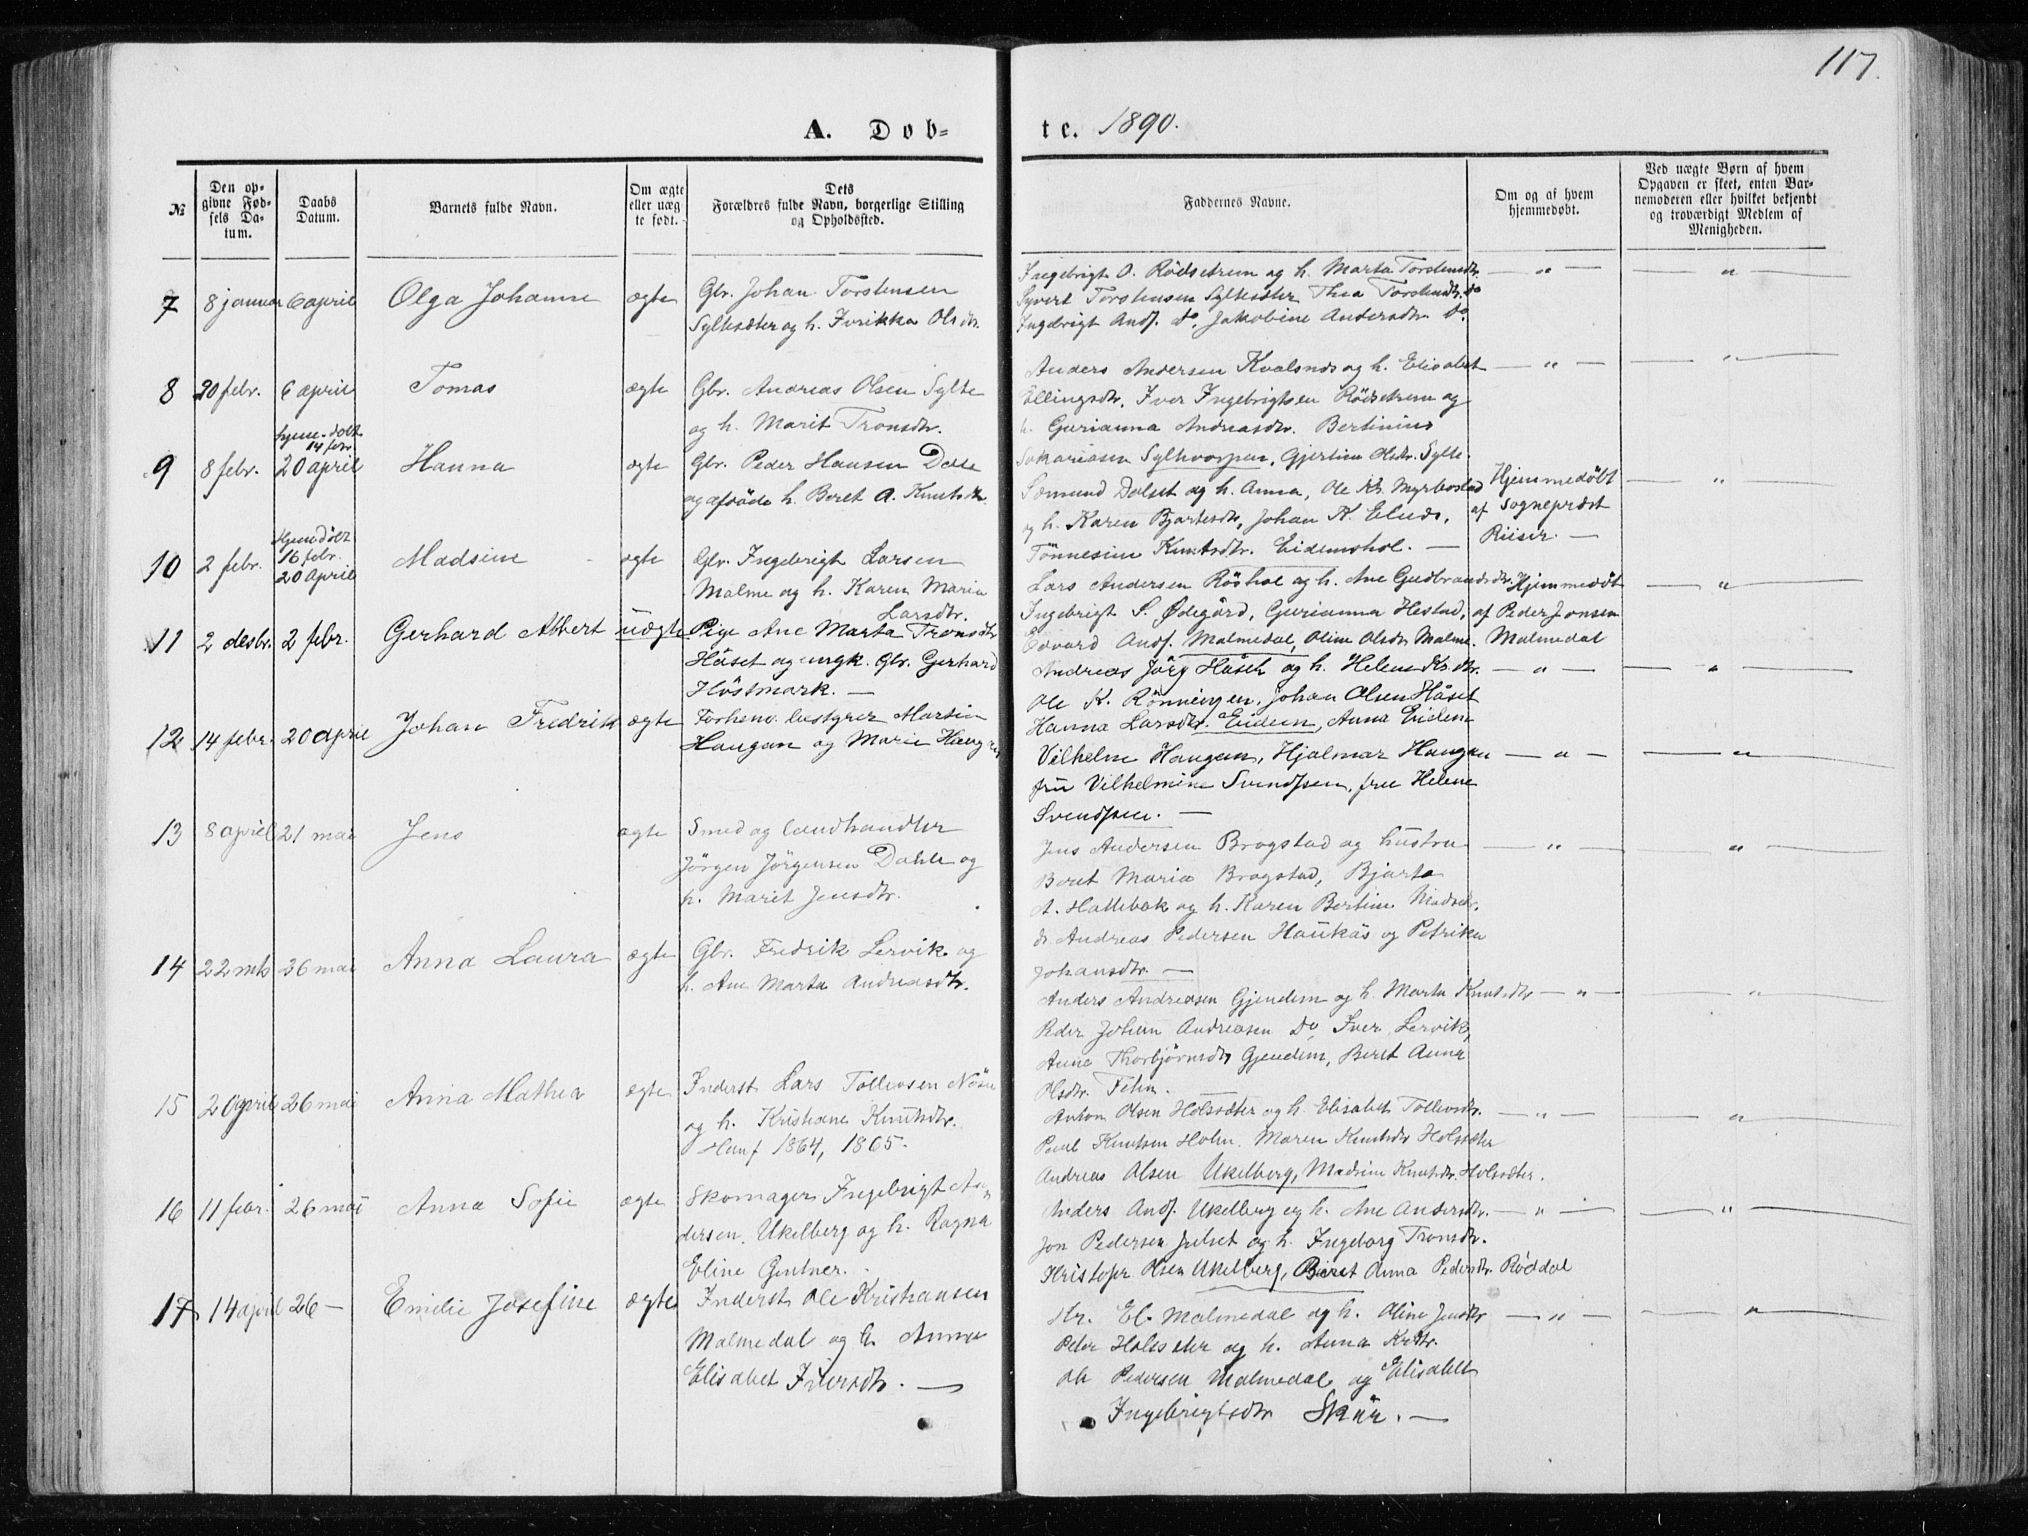 117.
A. Dob-
te. 1890.
№
Den op-
givne Fød-
sels Da-
tum.
Daabs
Datum.
Barnets fulde Navn.
Om ægte
eller uæg-
te født.
Dets
Forældres fulde Navn, borgerlige Stilling
og Opholdssted.
Faddernes Navne.
Om og af hvem
hjemmedøbt.
Ved uægte Børn af hvem
Opgaven er skeet, enten Bar-
nemoderen eller hvilket bekjendt
og troværdigt Medlem af
Menigheden.
7 8 januar 6 april Olga Johanne ægte Gbr. Johan Torstensen
Syltesæter og h. Olsdtr.
Ingebrigt O. Rödsetrem og h. Marta Torstensdtr. — " — — " —
Syvert Torstensen Syltesæter Thea Torstensdtr. do
Ingebrigt Ands. do, Jakobine Andersdtr. do.
8 20 febr. 6 april Tomas ægte Gbr. Andreas Olsen Sylte
og h. Marit Tronsdtr.
Anders Andersen Kvalsnes og h. Elisabet — " — — " —
Ellingsdtr. Iver Ingebrigtsen Rödsetrem og
h. Gurianna Andreasdtr. Bertinius
Sakariasen Sylte
9 8 febr. hjemedöbt
14 febr.
20 april Hanna ægte Gbr. Peder Hansen Dalle
og afdöde h. Beret A. Knutsdtr.
Sæmund Dalset og h. Anna, Ole Kr. Myrbostad
og h. Karen Bjartesdtr, Johan K. Elnes,
Tönnesine Knutsdtr. Eidemshol. —
Hjemmedöbt
af Sognepræst
Riiser. — — " —
10 2 febr. Hjemdöbt
16 febr.
20 april Madsine ægte Gbr. Ingebrigt Larsen
Malme og h. Karen Maria
Larsdtr.
Lars Andersen Röshol og h. Ane Gudbrandsdtr.
Ingebrigt S. Ødegård, Gurianna Hestad,
Edvard Ands. Malmedal, Oline Olsdtr Malme.
Hjemmedöbt
af Peder Jonsen
Malmedal — " —
11 2 desbr. 2 febr. Gerhard Albert uægte Pige Ane Marta Tronsdtr
Håset og ungk. Gbr. Gerhard
Höstmark. —
Andreas Jörg Håset og h. Helene Kr.dtr. — " — — " —
Ole K. Rönningen, Johan Olsen Håset
Hanna Larsdtr. Eidem, Anna Eidem
12 14 febr. 20 april Johan Fredrik ægte Forhenv. bestyrer Martin
Haugan og Marie Haugan
Vilhelm Haugan, Hjalmar Haugan — " — — " —
fru Vilhelmine Svendsen, fru Helene
Svendsen. —
13 8 april 21 mai Jens ægte Smed og landhandler
Jörgen Jörgensen Dahle og
h. Marit Jensdtr.
Jens Andersen Bragstad og hustru — " — — " —
Beret Maria Bragstad, Bjarta
A. Hallebak og h. Karen Bertine Madsdtr.
Andreas Pedersen Haukås og Petrika
Johansdtr. —
14 22 mts 26 mai Anna Laura ægte Gbr. Fredrik Lervik og
h. Ane Marta Andreasdtr.
Anders Andreasen Gjendem og h. Marta Knutsdtr — " — — " —
Peder Johan Andreasen Do, Iver Lervik,
Anna Thorbjörnsdtr Gjendem, Beret Anna
Olsdtr. —
15 2 April 26 mai Anna Mathea ægte Inderst Lars Tollevsen
og h. Kristiane Knutsdtr.
1864, 1865.
Anton Olsen Holsæter og h. Elisabet Tollevsdtr. — " — — " —
Paul Knutsen Holm. Maren Knutsdtr Holsæter
Andreas Olsen Ukelberg, Madsine Knutsdtr. Holsæter.
16 11 febr. 26 mai Anna Sofie ægte Skomager Ingebrigt An-
dersen, Ukelberg og h. Ragna
Eline Gentner.
Anders Ands. Ukelberg og h. Ane Andersdtr. — " — — " —
Jon Pedersen Julset og h. Ingeborg Tronsdtr.
Kristofer Olsen Ukelberg, Beret Anna Pedersdtr. Röddal
17 14 april 26 — Emilie Josefine ægte Inderst Ole Kristiansen
Malmedal og h. Anna
Elisabet Iversdtr. —
Kr. El. Malmedal og h. Oline Jensdtr — " — — " —
Peter Holsæter og h. Anna Krsdtr.
Ole Pedersen Malmedal og Elisabet
Ingebrigtsdtr Skår. —